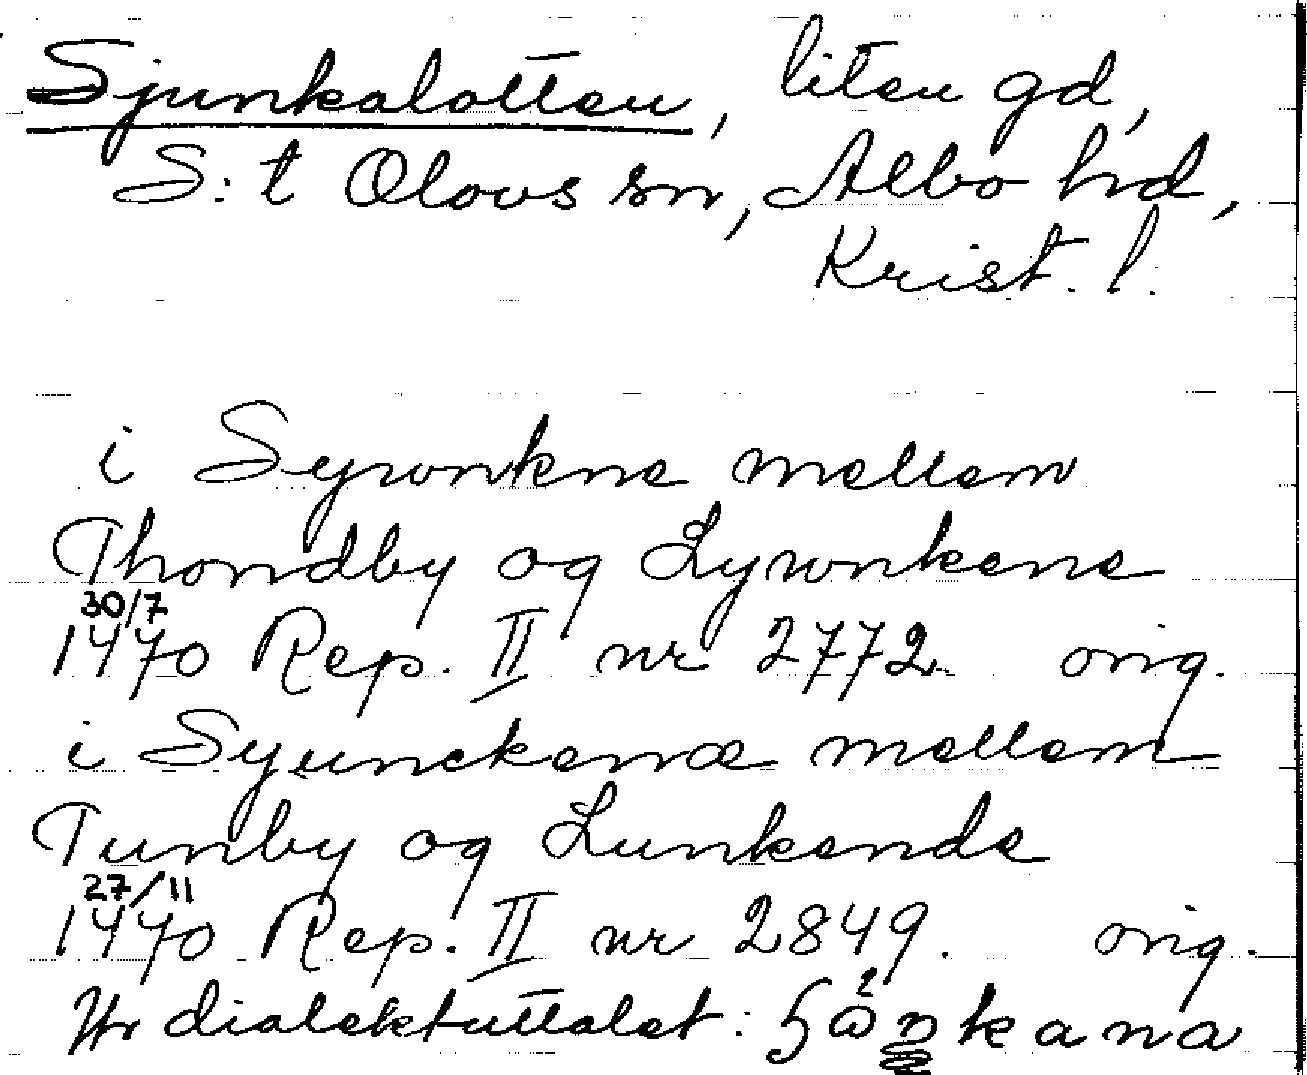 Sjunkalotten, liten gd,
S:t Olovs sn, Albo hd,
Krist. l.
i Sywnkne mellem
Thondby og Lywnkene
30/7
1470 Rep. II nr 2772 orig.
i Syunckenæ mellem
Tunby og Lunkende
27/11
1470 Rep. II nr 2849. orig.
Jfr dialektuttalet: